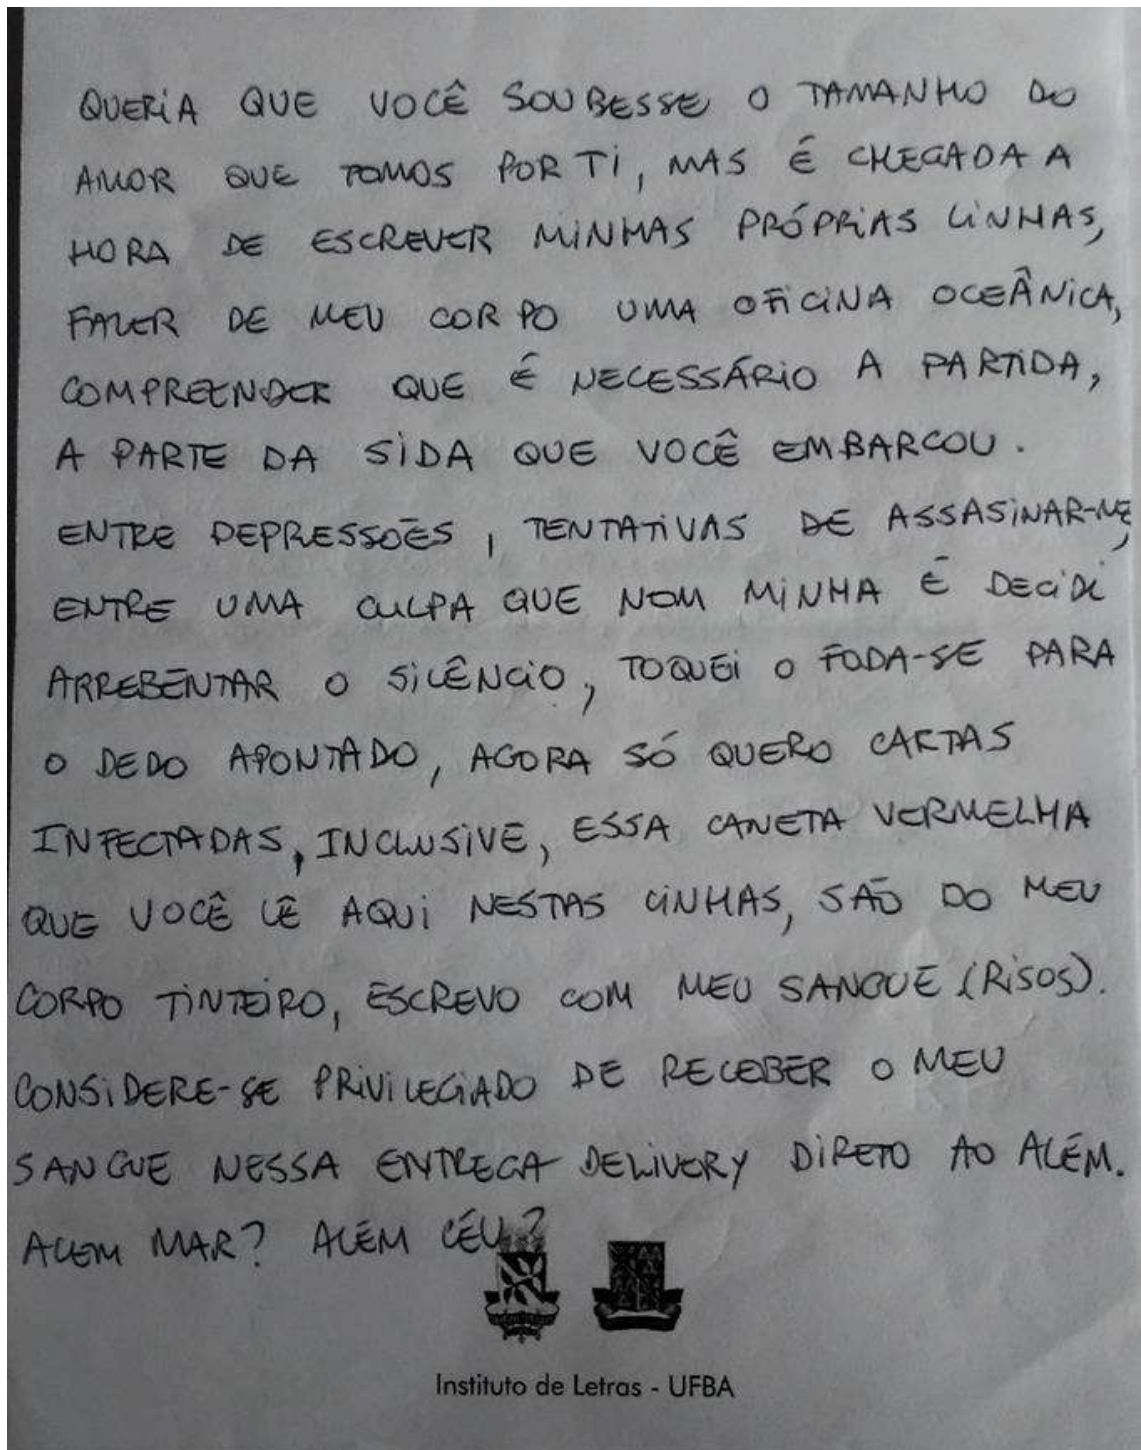 QUERIA QUE VOCÊ SOUBESSE O TAMANHO DO
AMOR QUE TOMOS POR TI, MAS É CHEGADA A
HORA DE ESCREVER MINHAS PRÓPRIAS LINHAS,
FAZER DE MEU CORPO UMA OFICINA OCEÂNICA,
COMPREENDER QUE É NECESSÁRIO A PARTIDA,
A PARTE DA SIDA QUE VOCÊ EMBARCOU.
ENTRE DEPRESSÕES, TENTATIVAS DE ASSASINAR-ME,
ENTRE UMA CULPA QUE NOM MINHA É DECIDI
ARREBENTAR O SILÊNCIO, TOQUEI O FODA-SE PARA
O DEDO APONTADO, AGORA SÓ QUERO CARTAS
INFECTADAS, INCLUSIVE, ESSA CANETA VERMELHA
QUE VOCÊ LÊ AQUI NESTAS LINHAS, SÃO DO MEU
CORPO TINTEIRO, ESCREVO COM MEU SANGUE (RISOS).
CONSIDERE-SE PRIVILEGIADO DE RECEBER O MEU
SANGUE NESSA ENTREGA DELIVERY DIRETO AO ALÉM.
ALEM MAR? ALÉM CÉU?
Instituto de Letras - UFBA